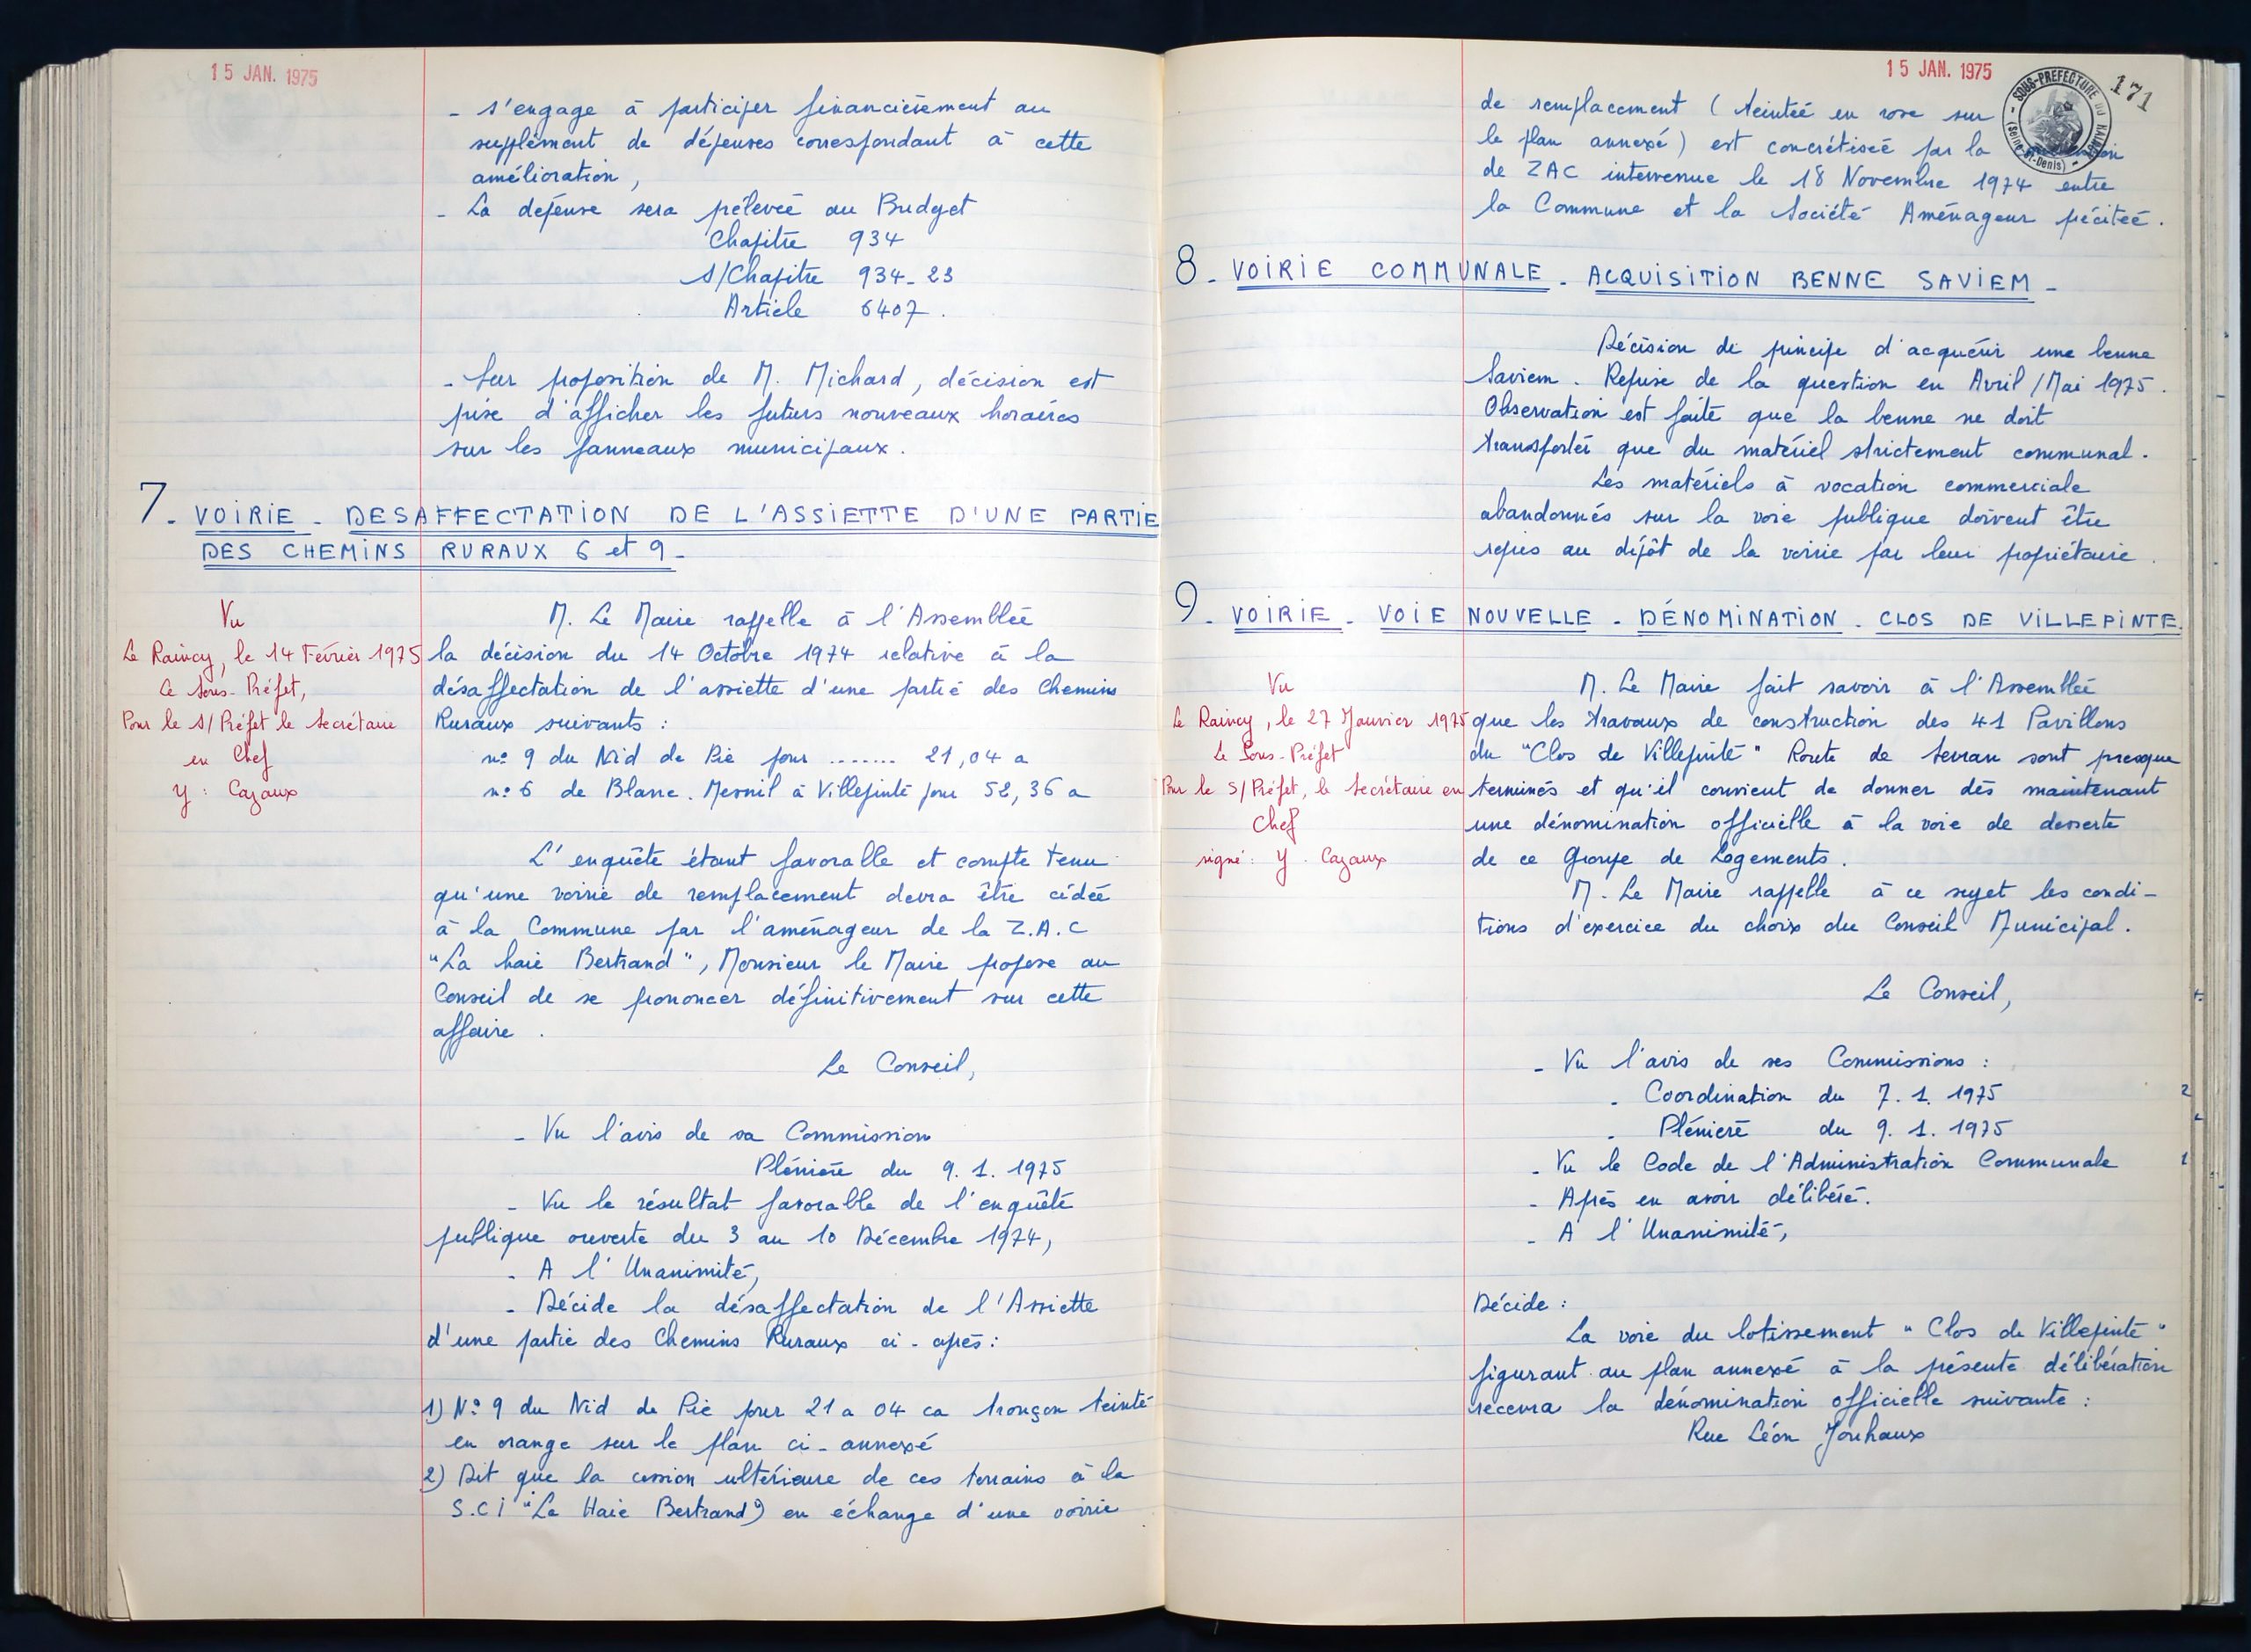 15 JAN. 1975
- s'engage à participer financièrement au
supplément de dépenses correspondant à cette
amélioration,
- La dépense sera prélevée au Budget
Chapitre 934
S/Chapitre 934-23
Article 6407.
- Sur proposition de M. Michard, décision est
prise d'afficher les futurs nouveaux horaires
sur les panneaux municipaux.
7. VOIRIE - DESAFFECTATION DE L'ASSIETTE D'UNE PARTIE
DES CHEMINS RURAUX 6 et 9 -
Vu
Le Raincy, le 14 Février 1975
Le Sous-Préfet,
Pour le S/Préfet le Secrétaire
en Chef
Y : Cazaux
M. Le Maire rappelle à l'Assemblée
la décision du 14 Octobre 1974 relative à la
désaffectation de l'assiette d'une partie des Chemins
Ruraux suivants :
n° 9 du Nid de Pie pour ....... 21,04 a
n° 6 de Blanc. Mesnil à Villepinte pour 52,36 a
L'enquête étant favorable et compte tenu
qu'une voirie de remplacement devra être cédée
à la Commune par l'aménageur de la Z.A.C
"La haie Bertrand", Monsieur le Maire propose au
Conseil de se prononcer définitivement sur cette
affaire.
Le Conseil,
- Vu l'avis de sa Commission
Plénière du 9.1.1975
- Vu le résultat favorable de l'enquête
publique ouverte du 3 au 10 Décembre 1974,
- A l'Unanimité,
- Décide la désaffectation de l'Assiette
d'une partie des Chemins Ruraux ci-après :
1) N° 9 du Nid de Pie pour 21 a 04 ca tronçon teinté
en orange sur le plan ci-annexé
2) Dit que la cession ultérieure de ces terrains à la
S.C.I "La Haie Bertrand") en échange d'une voirie
15 JAN. 1975
171
SOUS-PREFECTURE DU RAINCY
(Seine-St-Denis)
de remplacement (teintée en rose sur
le plan annexé) est concrétisée par la
de ZAC intervenue le 18 Novembre 1974 entre
la Commune et la Société Aménageur précitée.
8. VOIRIE COMMUNALE. ACQUISITION BENNE SAVIEM -
Décision de principe d'acquérir une benne
Saviem. Reprise de la question en Avril/Mai 1975.
Observation est faite que la benne ne doit
transporter que du matériel strictement communal.
Les matériels à vocation commerciale
abandonnés sur la voie publique doivent être
repris au dépôt de la voirie par leur propriétaire.
9. VOIRIE - VOIE NOUVELLE - DÉNOMINATION - CLOS DE VILLEPINTE.
Vu
Le Raincy, le 27 Janvier 1975
Le Sous-Préfet
Pour le S/Préfet, le Secrétaire en
Chef
signé : Y. Cazaux
M. Le Maire fait savoir à l'Assemblée
que les travaux de construction des 41 Pavillons
du "Clos de Villepinte" Route de Sevran sont presque
terminés et qu'il convient de donner dès maintenant
une dénomination officielle à la voie de desserte
de ce Groupe de Logements.
M. Le Maire rappelle à ce sujet les condi-
tions d'exercice du choix du Conseil Municipal.
Le Conseil,
- Vu l'avis de ses Commissions :
. Coordination du 7.1.1975
. Plénière du 9.1.1975
- Vu le Code de l'Administration Communale
- Après en avoir délibéré.
- A l'Unanimité,
Décide :
La voie du lotissement "Clos de Villepinte"
figurant au plan annexé à la présente délibération
recevra la dénomination officielle suivante :
Rue Léon Jouhaux